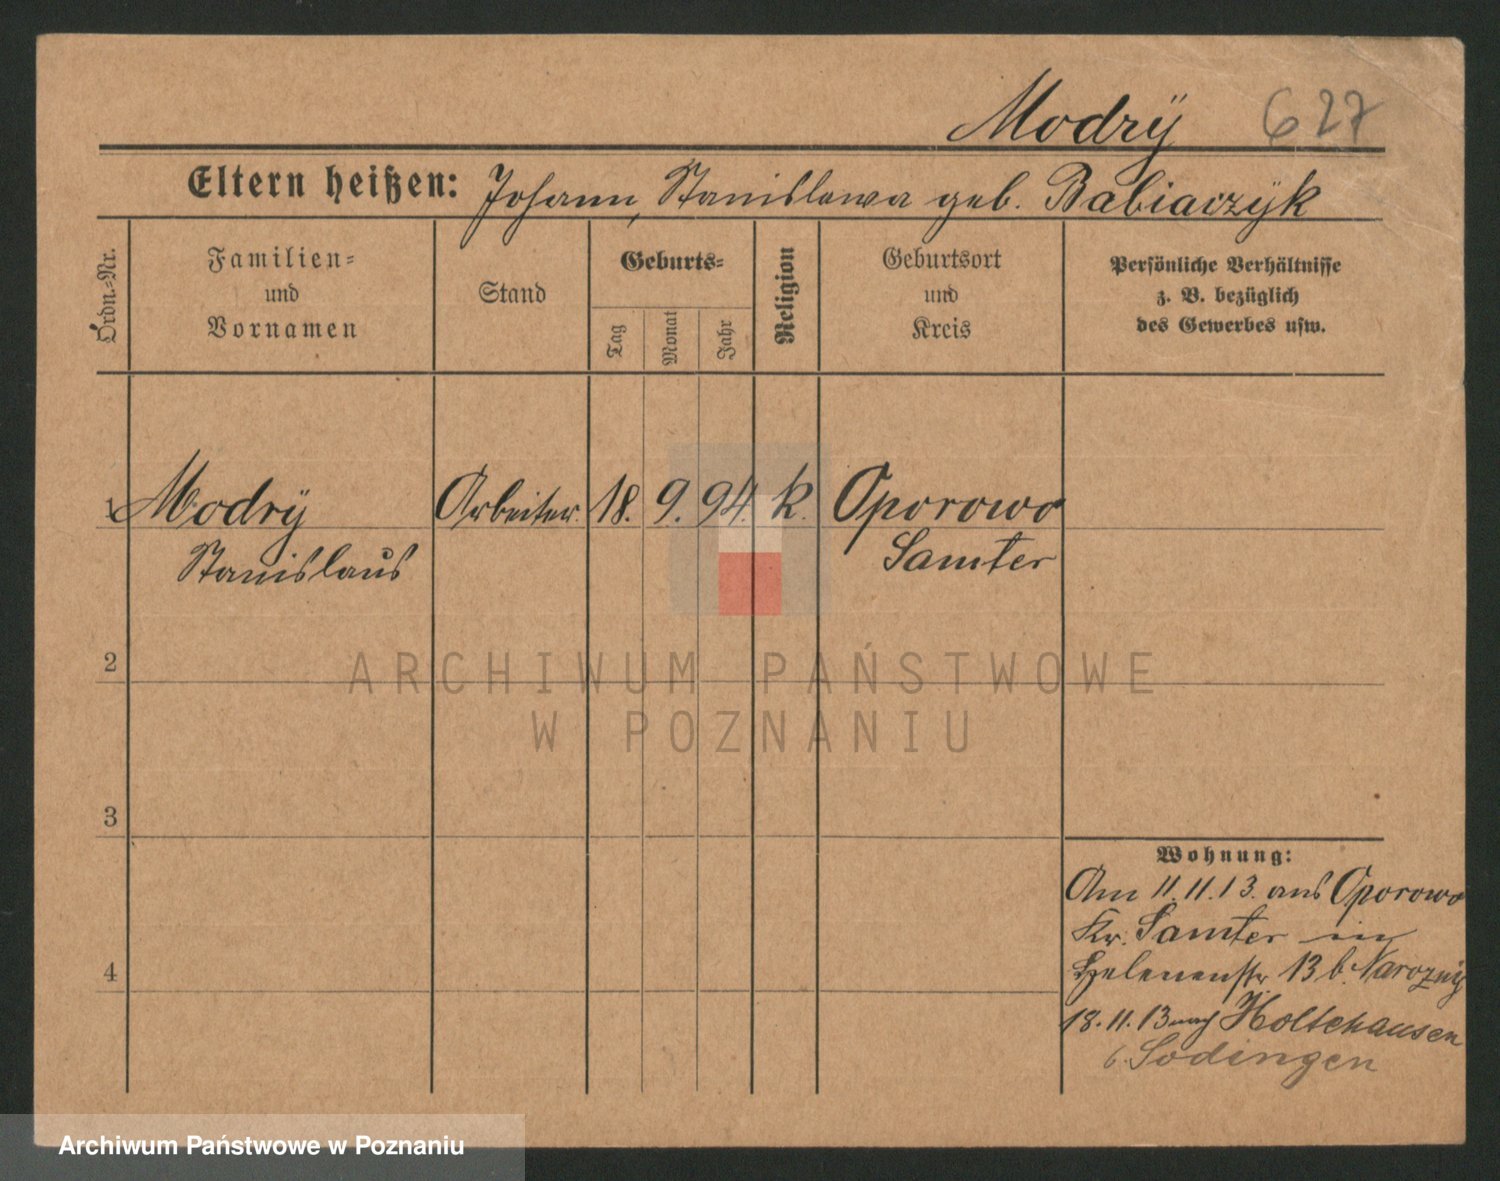 Modrÿ 627
Eltern heißen: Johann, Stanislawa geb. Babiaczÿk
Ordn.-Nr.
Familien-
und
Vornamen
Stand
Geburts-
Tag
Monat
Jahr
Religion
Geburtsort
und
Kreis
Persönliche Verhältnisse
z. B. bezüglich
des Gewerbes usw.
1 Modrÿ Arbeiter. 18. 9. 94. k. Oporowo
Stanislaus Samter
2
ARCHIWUM PAŃSTWOWE
W POZNANIU
3
Wohnung:
Am 11.11.13. aus Oporowo
Kr. Samter in
Helenenstr. 13 b. Narozny
4
18.11.13 nach Holtehausen
b. Sodingen
Archiwum Państwowe w Poznaniu